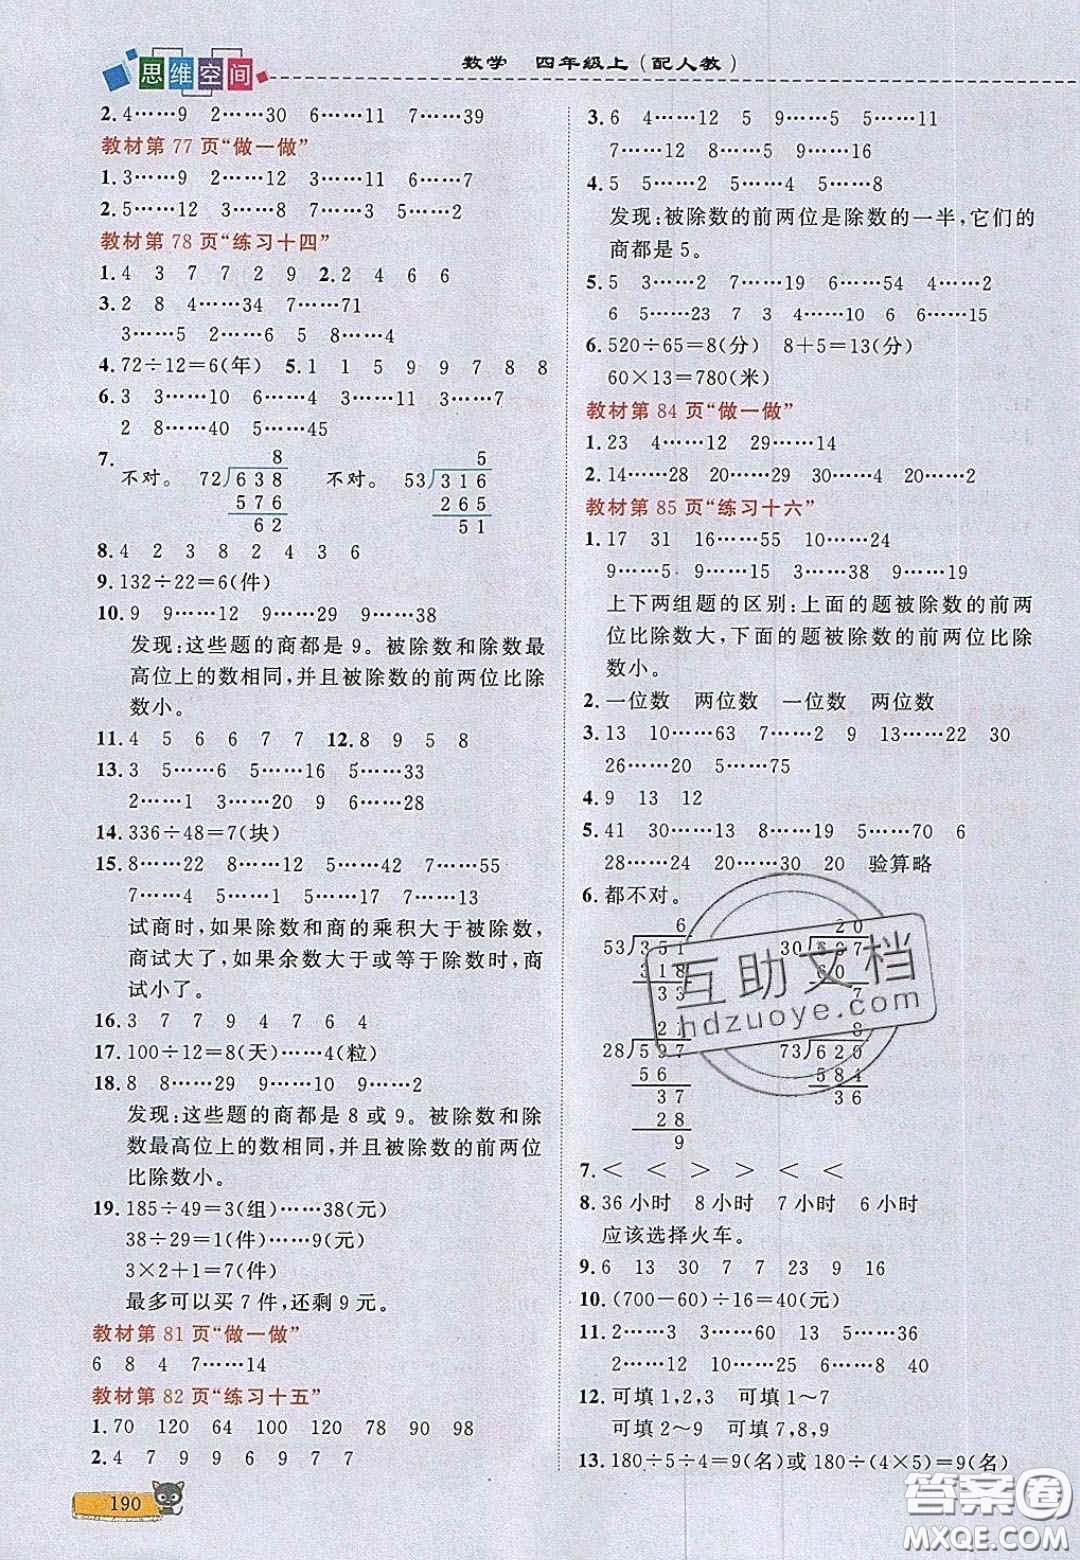 思维空间
数学　四年级上(配人教)
2. 4……9　2……30　6……11　7……39
教材第77页“做一做”
1. 3……9　2……12　3……11　4……8
2. 5……12　3……8　7……3　5……2
教材第78页“练习十四”
1. 4　3　7　7　2　9　2. 2　4　6　6
3. 2　8　4……34　7……71
3……5　2……6　5　8……4
4. 72÷12=6(年)　5. 1　1　5　9　9　7　8　8
6. 3　3……10　6……4　3……7
2　8……40　5……45
7. 不对。　不对。
8
72)638
576
62
5
53)316
265
51
8. 4　2　3　8　2　4　3　6
9. 132÷22=6(件)
10. 9　9……12　9……29　9……38
发现:这些题的商都是9。被除数和除数最
高位上的数相同,并且被除数的前两位比除
数小。
11. 4　5　6　6　7　7　12. 8　9　5　8
13. 3　5……6　5……16　5……33
2……1　4　9　6……28
14. 336÷48=7(块)
15. 8……22　8……12　5……42　7……55
7……4　5……1　5……17　7……13
试商时,如果除数和商的乘积大于被除数,
商试大了,如果余数大于或等于除数时,商
试小了。
16. 3　7　7　9　4　7　6　4
17. 100÷12=8(天)……4(粒)
18. 8　8……29　9……10　9……2
发现:这些题的商都是8或9。被除数和除
数最高位上的数相同,并且被除数的前两位
比除数小。
19. 185÷49=3(组)……38(元)
38÷29=1(件)……9(元)
3×2+1=7(件)
最多可以买7件,还剩9元。
教材第81页“做一做”
6　8　4　7……14
教材第82页“练习十五”
1. 70　120　64　100　120　78　90　98
2. 4　7　9　9　6　9　7　7
190
3. 6　4……12　5　9　5……11
7……12　8……5　9……16
4. 5　5……2　5……4　5……8
发现:被除数的前两位是除数的一半,它们的
商都是5。
5. 5　3……2　7……24　4……2
6　5……23　7　3　4……10　6　6……15
6. 520÷65=8(分)　8+5=13(分)
60×13=780(米)
教材第84页“做一做”
1. 23　4……12　29……14
2. 14……28　20……29　30……4　20……2
教材第85页“练习十六”
1. 17　31　16……55　10……24
9……5　9……15　3……38　9……19
上下两组题的区别:上面的题被除数的前两
位比除数大,下面的题被除数的前两位比除
数小。
2. 一位数　两位数　一位数　两位数
3. 13　10……63　7……2　9　13　22　30
26……20　5……75
4. 9　13　12
5. 41　30……13　8……19　15……70　6
28……24　20……30　20　验算略
6. 都不对。
6
53)351
318
33
20
30)607
60
7
21
28)597
56
37
28
9
8
73)620
584
36
7. <　<　>　>　<　<
8. 36小时　8小时　7小时　6小时
应该选择火车。
9. 6　13　30　7　7　23　9　16
10. (700-60)÷16=40(元)
11. 2……3　3……60　13　5……36
2……12　10……56　6……8　40
12. 可填1,2,3　可填1~7
可填2~9　可填7,8,9
13. 180÷5÷4=9(名)或180÷(4×5)=9(名)
互助文档
hdzuoye.com
答案圈
MXQE.COM